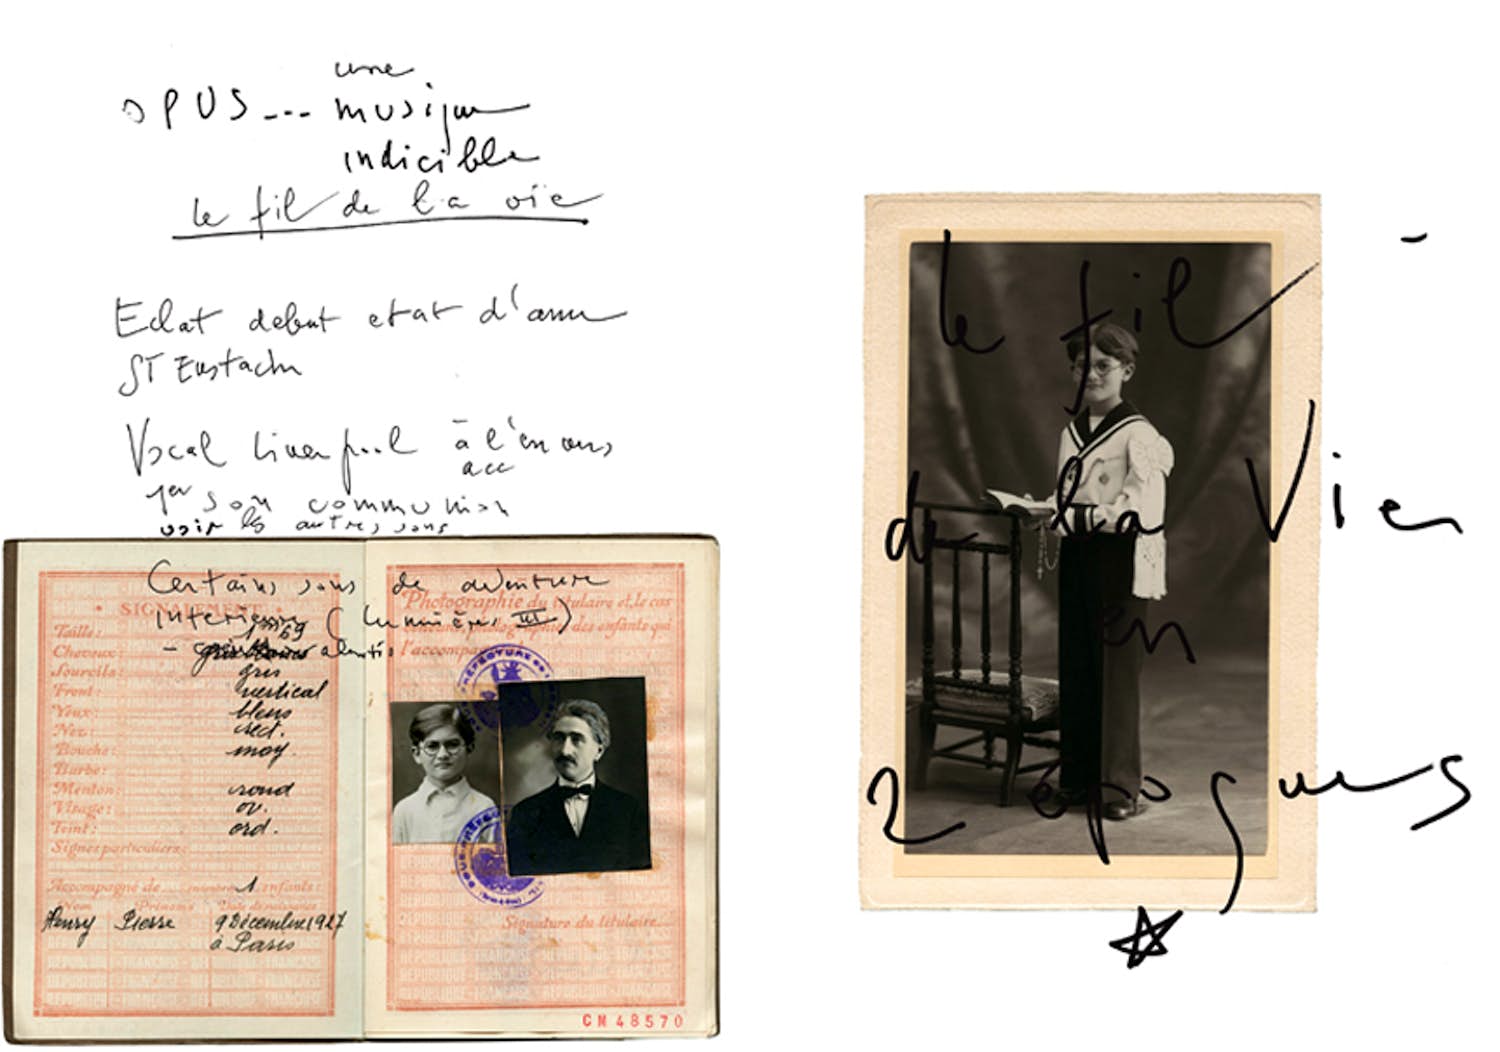 une
OPUS --- musique
indicible
le fil de la vie
Eclat debut etat d'ame
ST Eustache
Vocal Liverpool à l'envers
acc
1er son communion
voir les autres sons
Certains sons de aventure
interieure (Lumières III)
- ralentis
• SIGNALEMENT •
Taille: 1m 69
Cheveux:
Sourcils: gris
Front: vertical
Yeux: bleus
Nez: rect.
Bouche: moy.
Barbe:
Menton: rond
Visage: ov.
Teint: ord.
Signes particuliers:
Accompagné de 1 enfants:
Nom Prénoms
Henry Pierre 9 Décembre 1927
à Paris
REPUBLIQUE-FRANÇAISE
Photographie du titulaire et, le cas
des enfants qui
l'accompa
PREFECTURE
Signature du titulaire
REPUBLIQUE-FRANÇAISE
CM 48570
le fil
de la Vie
en
2 époques